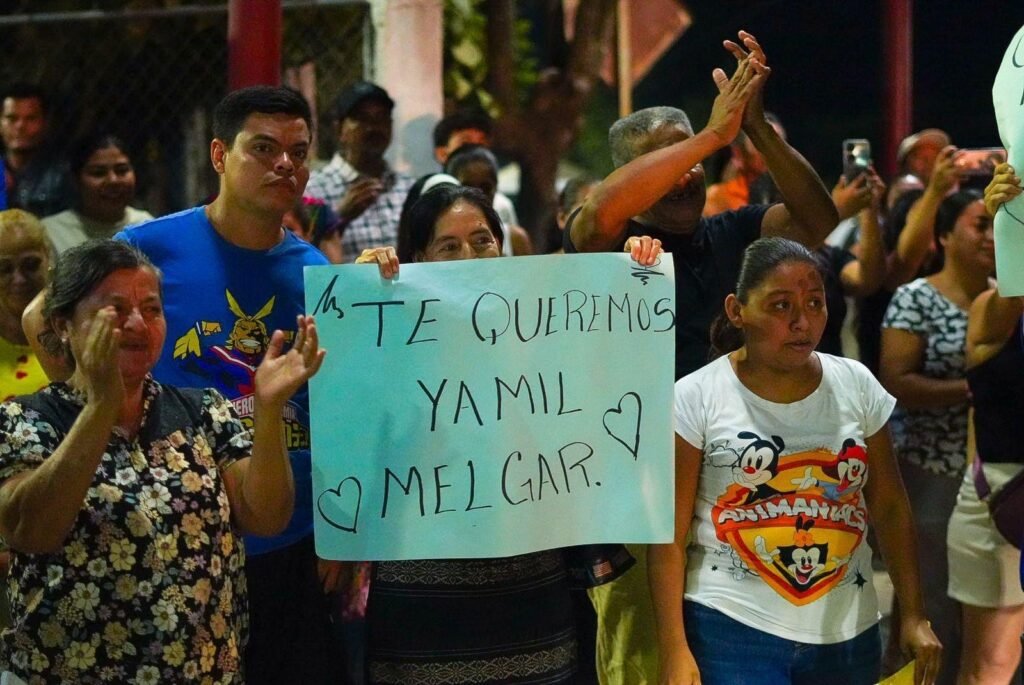 TE QUEREMOS
YAMIL
MELGAR.
ANIMANIACS